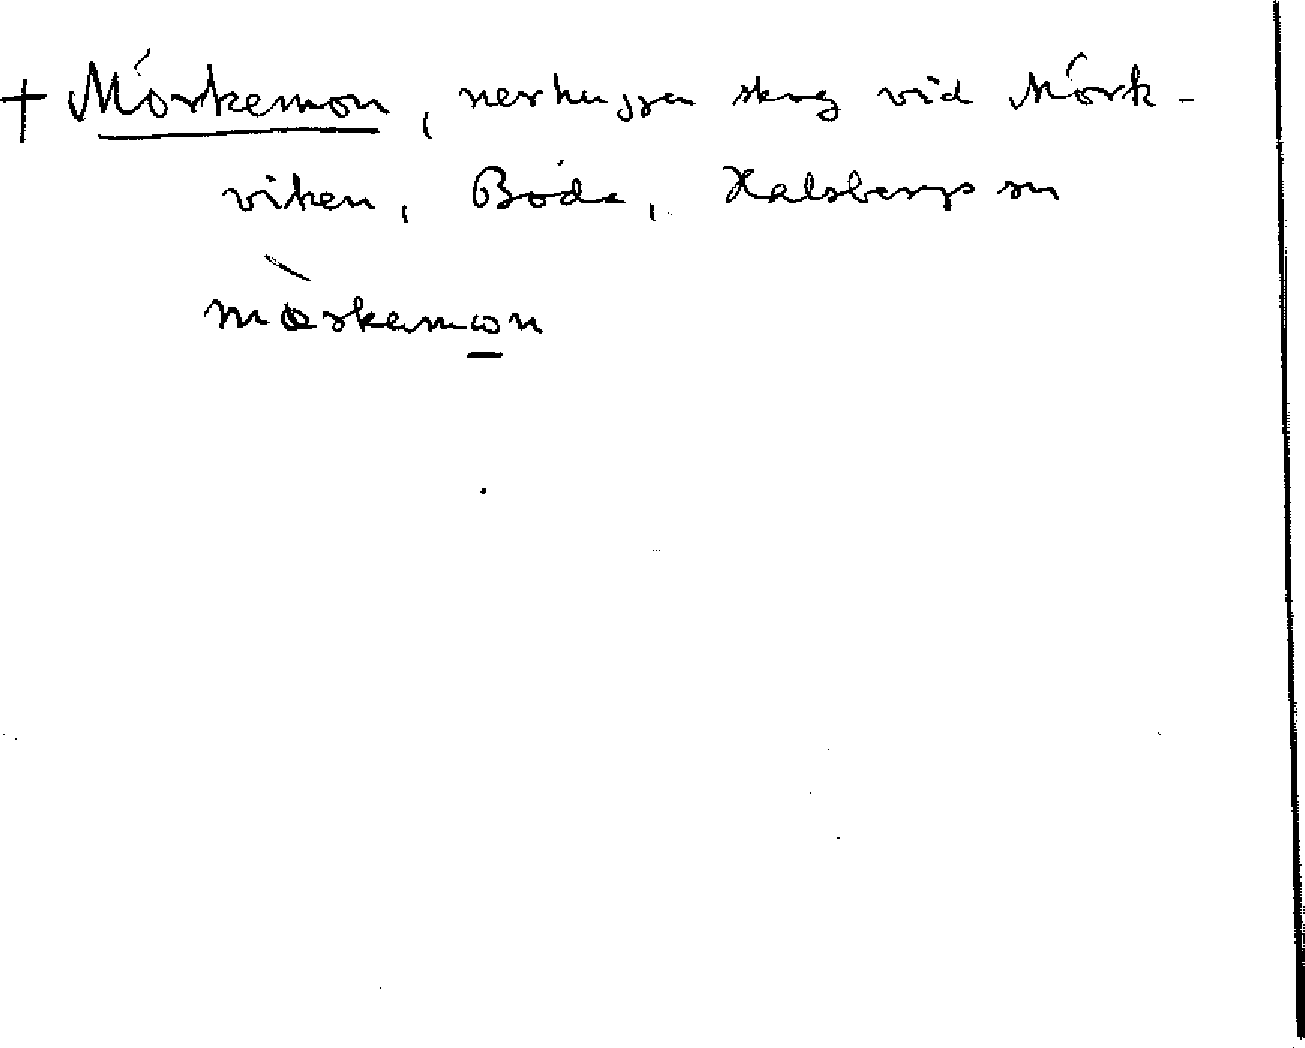 + Mörkemon, nerhuggen skog vid Mörk-
viken, Böda, Halsbergs sn
mœ̀rkemon